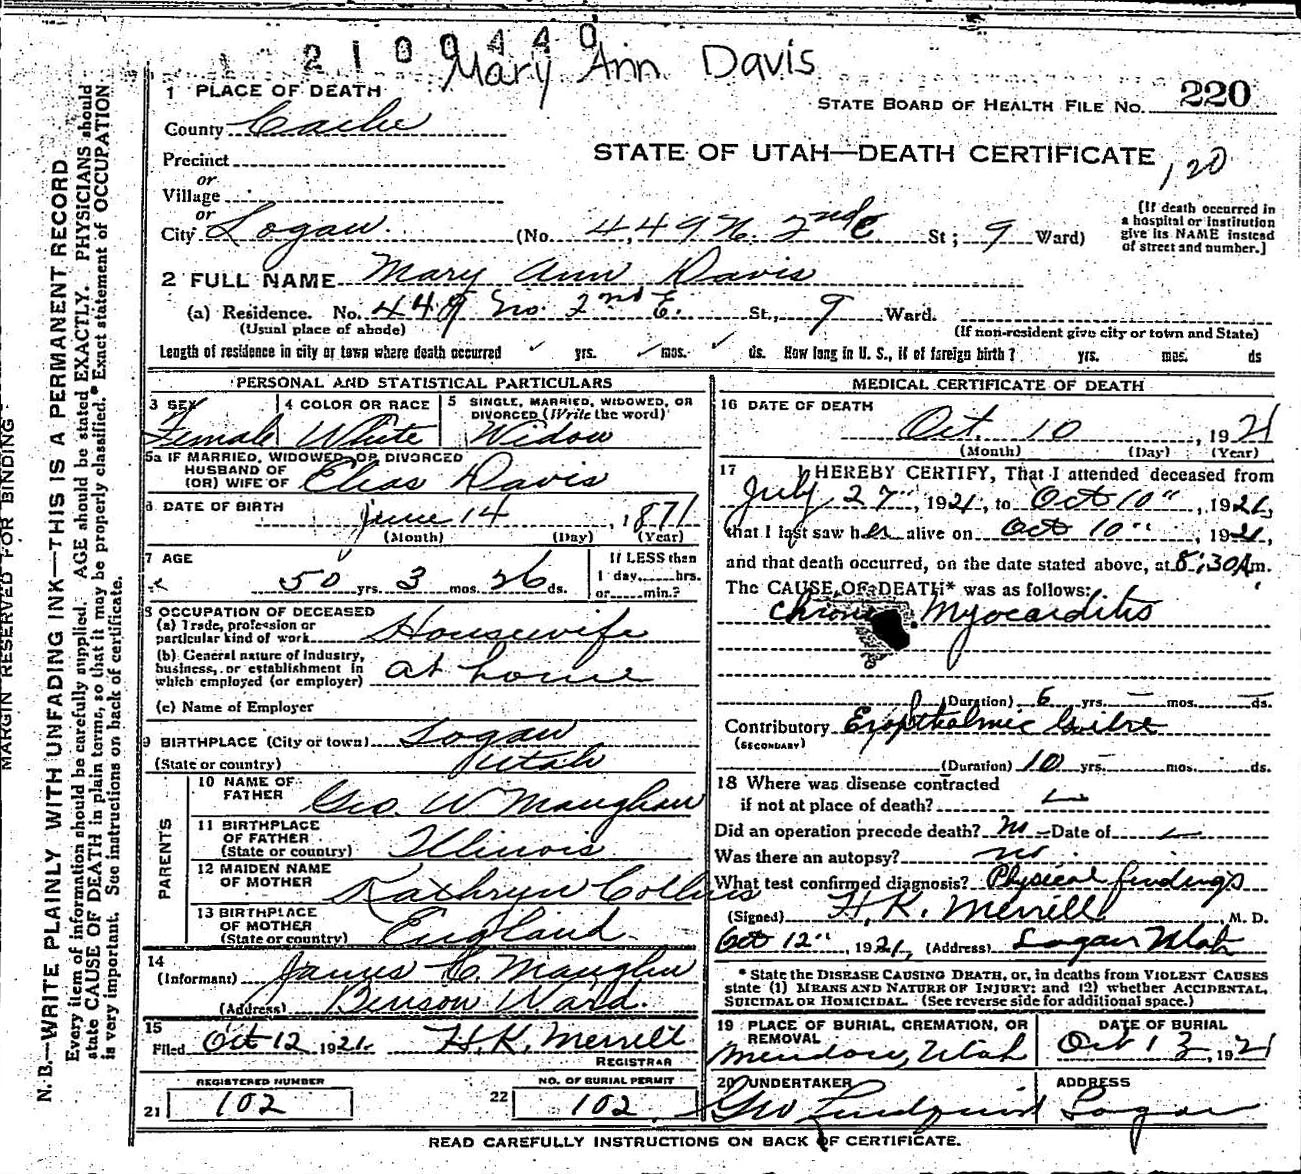 2100440
Mary Ann Davis
1 PLACE OF DEATH
STATE BOARD OF HEALTH FILE NO. 220
County Cache
STATE OF UTAH—DEATH CERTIFICATE
120
Precinct
or
Village
or
City Logan (No. 449 N. 2nd E. St; 9 Ward)
[If death occurred in
a hospital or institution
give its NAME instead
of street and number.]
2 FULL NAME Mary Ann Davis
(a) Residence. No. 449 No. 2nd E. St., 9 Ward.
(Usual place of abode)
(If non-resident give city or town and State)
Length of residence in city or town where death occurred yrs. mos. ds. How long in U. S., if of foreign birth? yrs. mos. ds
PERSONAL AND STATISTICAL PARTICULARS
3 SEX
Female
4 COLOR OR RACE
White
5 SINGLE, MARRIED, WIDOWED, OR
DIVORCED (Write the word)
Widow
5a IF MARRIED, WIDOWED, OR DIVORCED
HUSBAND OF
(OR) WIFE OF Elias Davis
6 DATE OF BIRTH
June 14, 1871
(Month) (Day) (Year)
7 AGE
50 yrs. 3 mos. 26 ds.
If LESS than
1 day,......hrs.
or......min.?
8 OCCUPATION OF DECEASED
(a) Trade, profession or
particular kind of work Housewife
(b) General nature of industry,
business, or establishment in
which employed (or employer) at home
(c) Name of Employer
9 BIRTHPLACE (City or town) Logan
(State or country) Utah
PARENTS
10 NAME OF
FATHER Geo. W Maughan
11 BIRTHPLACE
OF FATHER
(State or country) Illinois
12 MAIDEN NAME
OF MOTHER Kathryn Collins
13 BIRTHPLACE
OF MOTHER
(State or country) England.
14
(Informant) James C. Maughn
(Address) Benson Ward.
15
Filed Oct 12 1921. H.K. Merrill
REGISTRAR
REGISTERED NUMBER
21 102
NO. OF BURIAL PERMIT
22 102
MEDICAL CERTIFICATE OF DEATH
16 DATE OF DEATH
Oct. 10, 1921
(Month) (Day) (Year)
17 I HEREBY CERTIFY, That I attended deceased from
July 27", 1921, to Oct 10", 1921,
that I last saw her alive on Oct 10", 1921,
and that death occurred, on the date stated above, at 8:30 A.m.
The CAUSE OF DEATH* was as follows:
Chronic Myocarditis
(Duration) 6 yrs. — mos. — ds.
Contributory Exopthalmic Goitre
(SECONDARY)
(Duration) 10 yrs. mos. ds.
18 Where was disease contracted
if not at place of death?
Did an operation precede death? no Date of
Was there an autopsy? no.
What test confirmed diagnosis? Physical findings
(Signed) H.K. Merrill, M. D.
Oct 12", 1921, (Address) Logan Utah
* State the DISEASE CAUSING DEATH, or, in deaths from VIOLENT CAUSES
state (1) MEANS AND NATURE OF INJURY; and (2) whether ACCIDENTAL,
SUICIDAL OR HOMICIDAL. (See reverse side for additional space.)
19 PLACE OF BURIAL, CREMATION, OR
REMOVAL
Mendon, Utah
DATE OF BURIAL
Oct 13, 1921
20 UNDERTAKER
Geo Lindquist
ADDRESS
Logan
READ CAREFULLY INSTRUCTIONS ON BACK OF CERTIFICATE.
MARGIN RESERVED FOR BINDING
N. B.—WRITE PLAINLY WITH UNFADING INK—THIS IS A PERMANENT RECORD
Every item of information should be carefully supplied. AGE should be stated EXACTLY. PHYSICIANS should
state CAUSE OF DEATH in plain terms, so that it may be properly classified. Exact statement of OCCUPATION
is very important. See instructions on back of certificate.